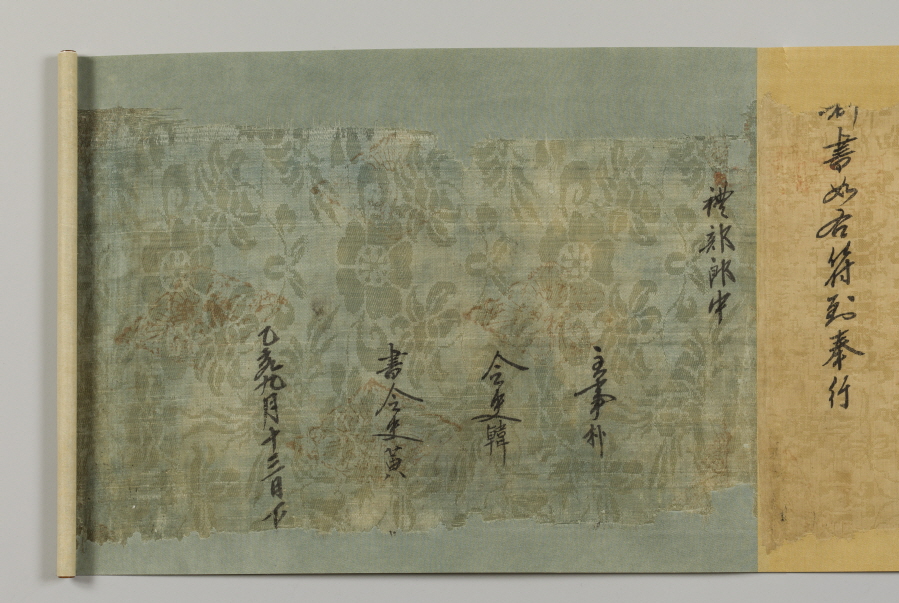 制書如右符到奉行
禮部郎中
主事朴
令史韓
書令史黃
乙亥九月十三日下